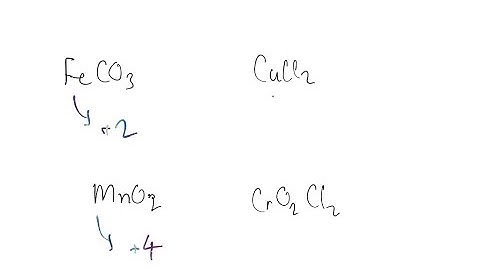 FeCO3 CuCl2
+2
MnO2 CrO2Cl2
+4